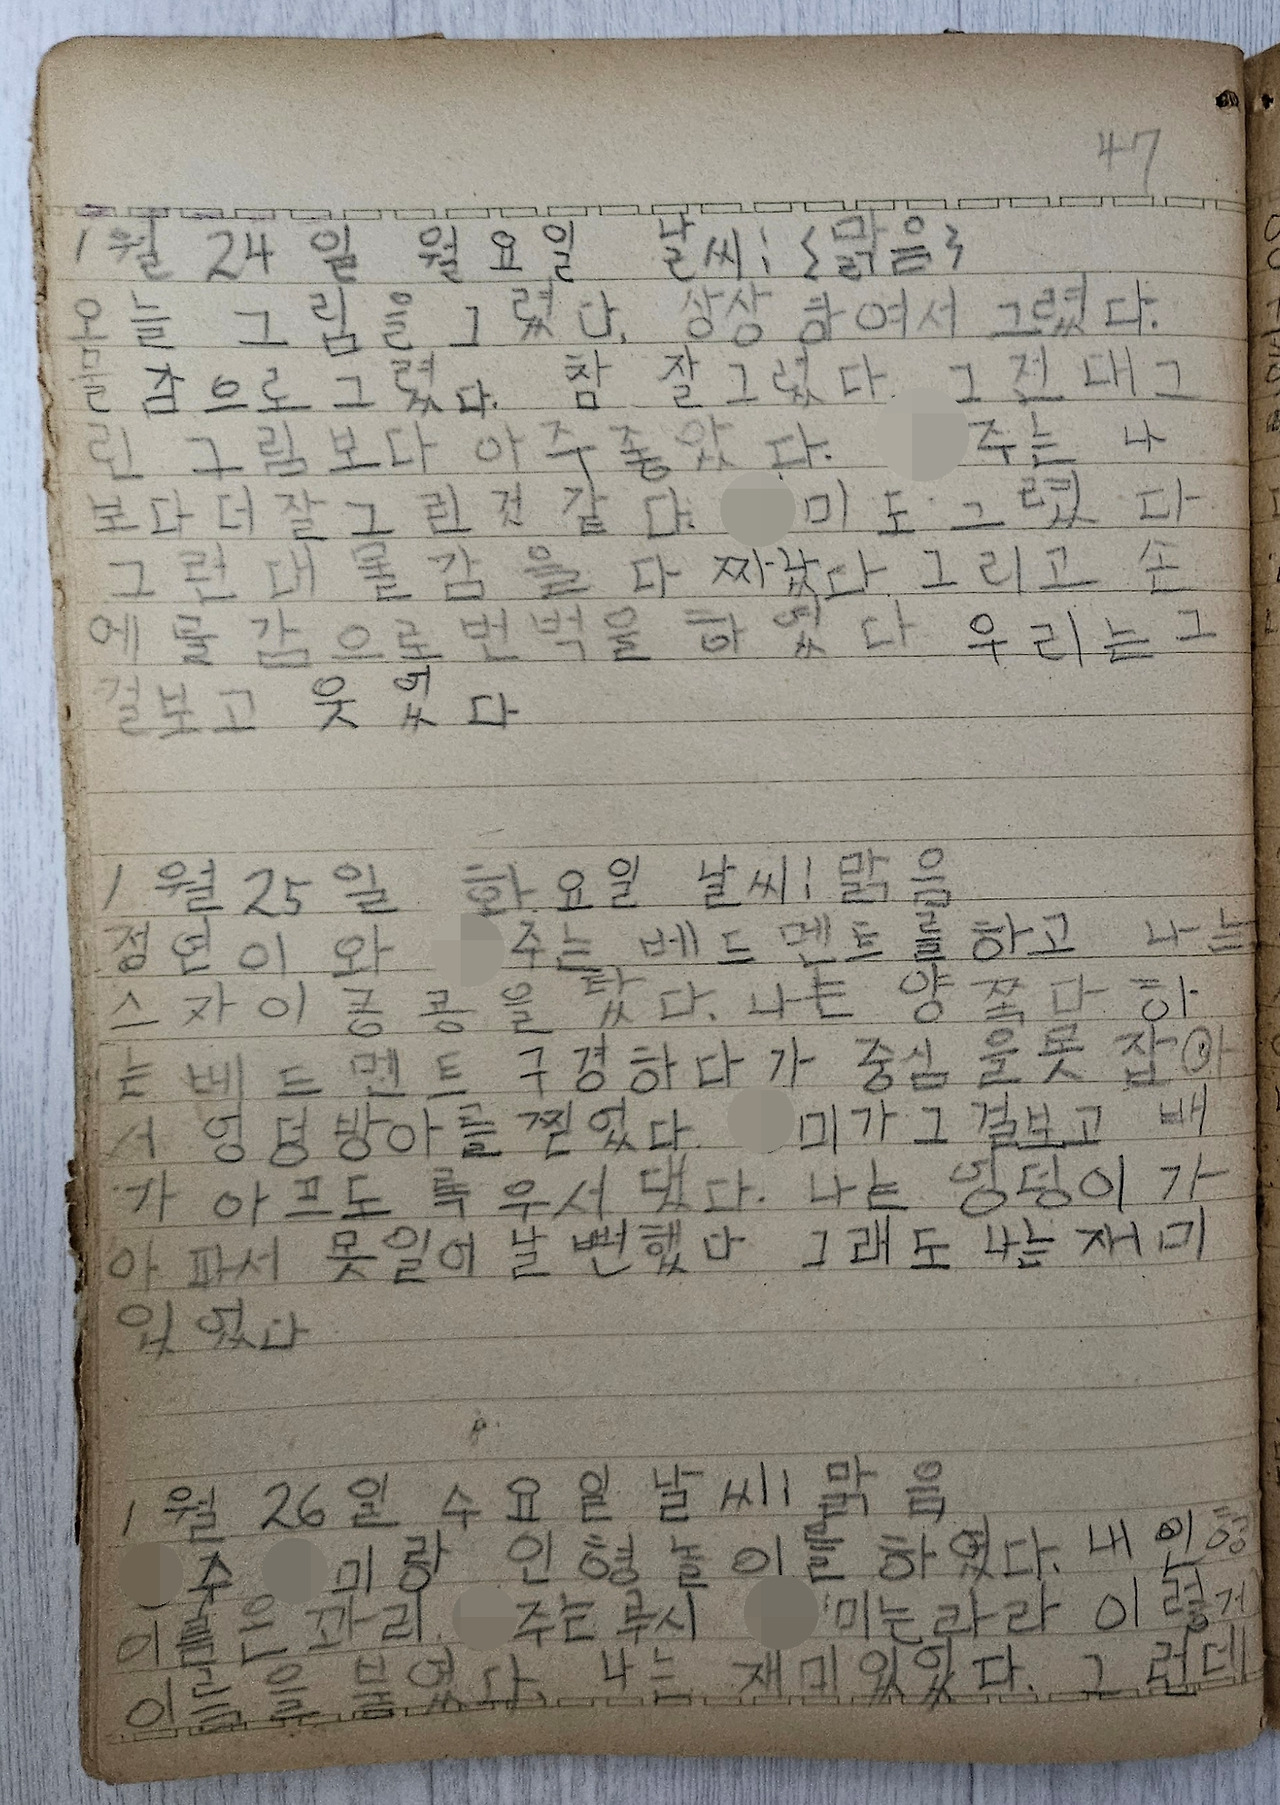 47
1월 24일 월요일 날씨: {맑음}
오늘 그림을 그렸다. 상상하여서 그렸다.
물감으로 그렸다. 참 잘그렸다. 그전대그
린 그림보다 아주좋았다. 주는 나
보다더잘그린것 같다. 미도 그렸다
그런대 물감을 다 짜갔다 그리고 손
에 물감으로 번벅을 하였다 우리는그
걸보고 웃었다
1월 25일 화요일 날씨: 맑음
정연이와 주는 베드멘트를하고 나는
스자이콩콩을 탔다. 나는 양쪽다 하
는 베드멘트 구경하다가 중심을못 잡아
서 엉덩방아를 찓었다. 미가그걸보고 배
가 아프도록 우서댔다. 나는 엉덩이가
아파서 못일어날뻔했다 그래도 나는재미
있었다
1월 26일 수요일 날씨: 맑음
주 미랑 인형놀이를하였다. 내인형
이름은꽈리. 주는루시 미는라라 이렇거
이름을 불였다. 나는 재미있었다. 그런데